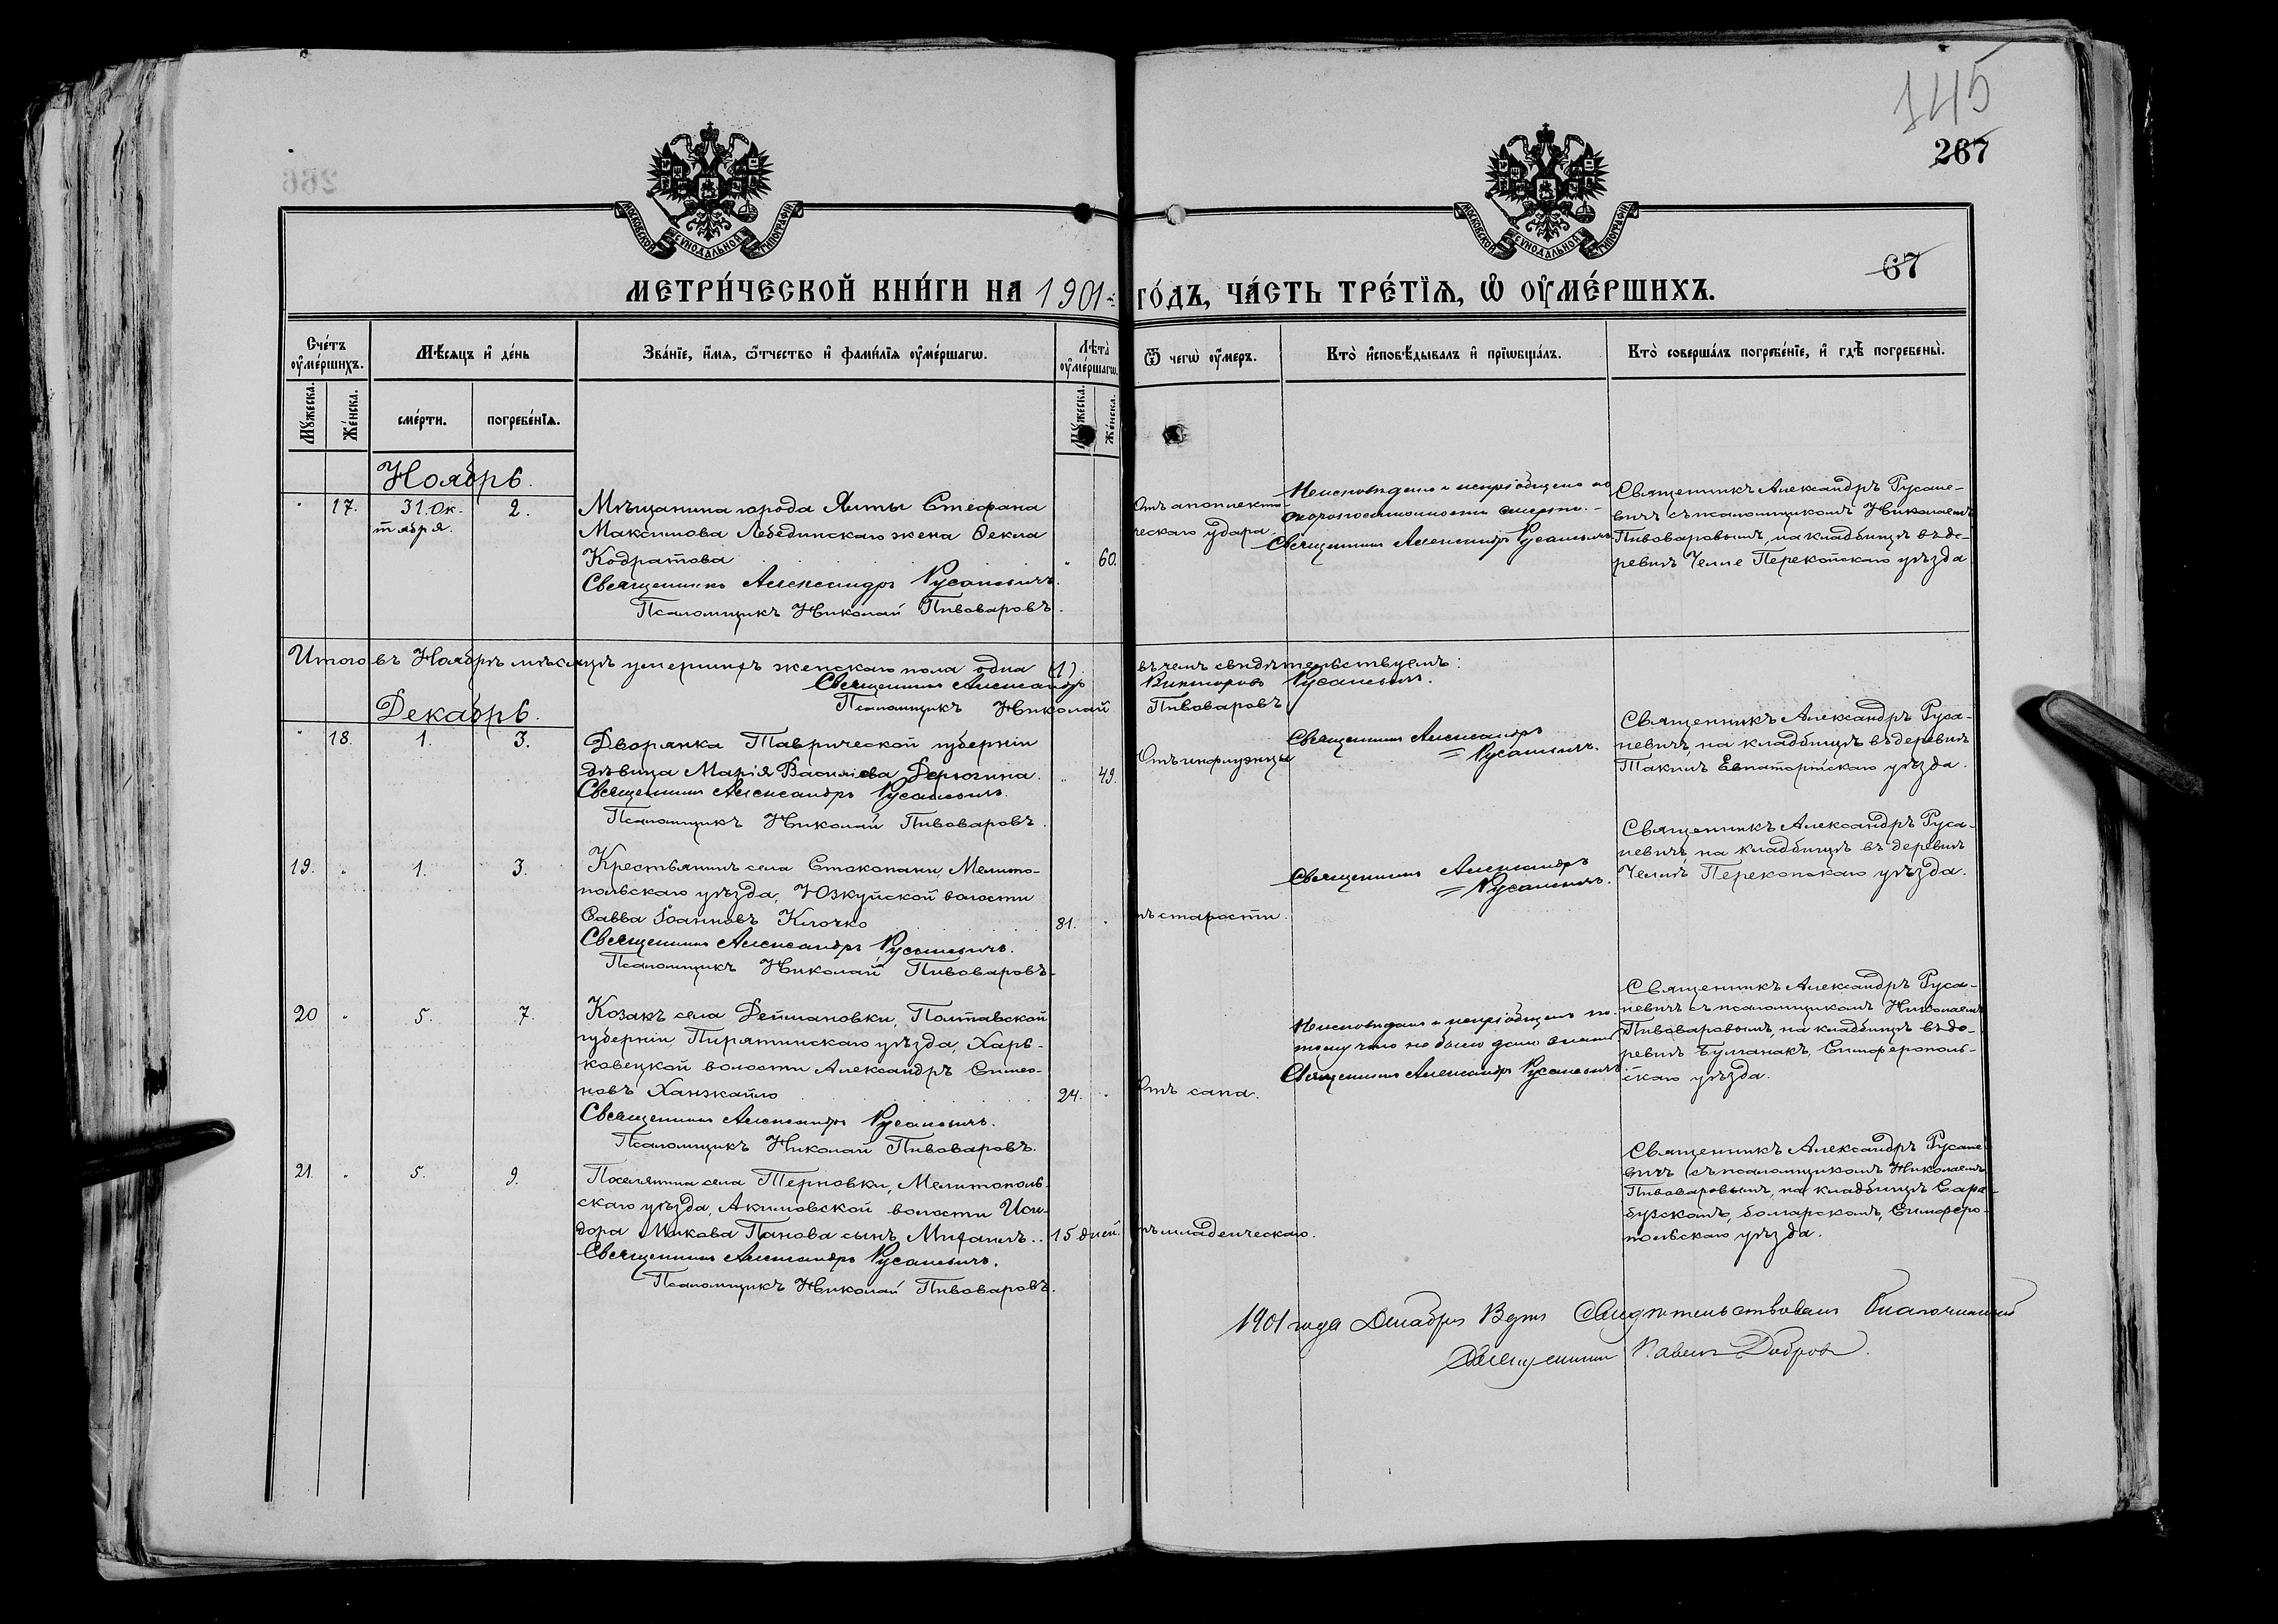 145
267
67
МОСКОВСКОЙ СУНОДАЛЬНОЙ ТИПОГРАФІИ
МОСКОВСКОЙ СУНОДАЛЬНОЙ ТИПОГРАФІИ
МЕТРИ́ЧЕСКОЙ КНИ́ГИ НА 1901 ГО́ДЪ, ЧА́СТЬ ТРЕ́ТЇѦ, Ѡ ОУ҆МЕ́РШИХЪ.
Сче́тъ оу҆ме́ршихъ.
Мѣ́сяцъ и҆ де́нь
Зва́нїе, и҆́мѧ, ѻ҆́тчество и҆ фами́лїѧ оу҆ме́ршагѡ.
Лѣта̀ оу҆ме́ршагѡ.
Ѿ чегѡ̀ оу҆́меръ.
Кто̀ и҆сповѣ́дывалъ и҆ прїѡбща́лъ.
Кто̀ соверша́лъ погребе́нїе, и҆ гдѣ̀ погребены̀.
Мꙋ́жеска.
Же́нска.
сме́рти.
погребе́нїѧ.
Мꙋ́жеска.
Же́нска.
Ноябрь.
" 17. 31. Ок-
тября. 2.
Мѣщанина города Ялты Стефана
Максимова Лебединскаго жена Ѳекла
Кодратова " 60.
Священникъ Александръ Русаневичъ.
Псаломщикъ Николай Пивоваровъ.
Отъ апоплекти-
ческаго удара.
Неисповѣдана и непріобщена по
скоропостижности смерти. -
Священникъ Александръ Русаневичъ
Священникъ Александръ Русане-
вичъ съ псаломщикомъ Николаемъ
Пивоваровымъ, на кладбищѣ въ де-
ревнѣ Челле Перекопскаго уѣзда
Итого въ Ноябрѣ мѣсяцѣ умершихъ женскаго пола одна (1). въ чемъ свидѣтельствуемъ:
Священникъ Александръ Викторовъ Русаневичъ.
Псаломщикъ Николай Пивоваровъ
Декабрь.
" 18. 1. 3.
Дворянка Таврической губерніи
дѣвица Марія Василіева Дерюгина. " 49.
Священникъ Александръ Русаневичъ.
Псаломщикъ Николай Пивоваровъ.
Отъ инфлуэнцы
Священникъ Александръ
= Русаневичъ.
Священникъ Александръ Руса-
невичъ, на кладбищѣ въ деревнѣ
Такилъ Евпаторійскаго уѣзда.
19. " 1. 3.
Крестьянинъ села Стокопани, Мелито-
польскаго уѣзда, Юзкуйской волости
Савва Іоанновъ Клочко 81. "
Священникъ Александръ Русаневичъ.
Псаломщикъ Николай Пивоваровъ.
тъ старости.
Священникъ Александръ
= Русаневичъ.
Священникъ Александръ Руса-
невичъ, на кладбищѣ въ деревнѣ
Перекопскаго уѣзда.
20 " 5. 7.
Козакъ села Деймановки, Полтавской
губерніи Пирятинскаго уѣзда, Харь-
ковецкой волости Александръ Симео-
новъ Ханжайло 24. "
Священникъ Александръ Русаневичъ.
Псаломщикъ Николай Пивоваровъ.
Отъ сапа.
Неисповѣданъ и непріобщенъ по-
тому что не было дано знать
Священникъ Александръ Русаневичъ
Священникъ Александръ Руса-
невичъ съ псаломщикомъ Николаемъ
Пивоваровымъ, на кладбищѣ въ де-
ревнѣ Булганакъ, Симферополь-
скаго уѣзда.
21. " 5. 9.
Поселянина села Терновки, Мелитополь-
скаго уѣзда, Акимовской волости Иси-
дора Панова сынъ Михаилъ.. 15 дней.
Священникъ Александръ Русаневичъ.
Псаломщикъ Николай Пивоваровъ.
тъ младенческаго.
Священникъ Александръ Русане-
вичъ съ псаломщикомъ Николаемъ
Пивоваровымъ, на кладбищѣ Сара-
бузскомъ, болгарскомъ, Симферо-
польскаго уѣзда.
1901 года Декабря свидѣтельствовалъ благочинный
Священникъ Павелъ Добровъ.